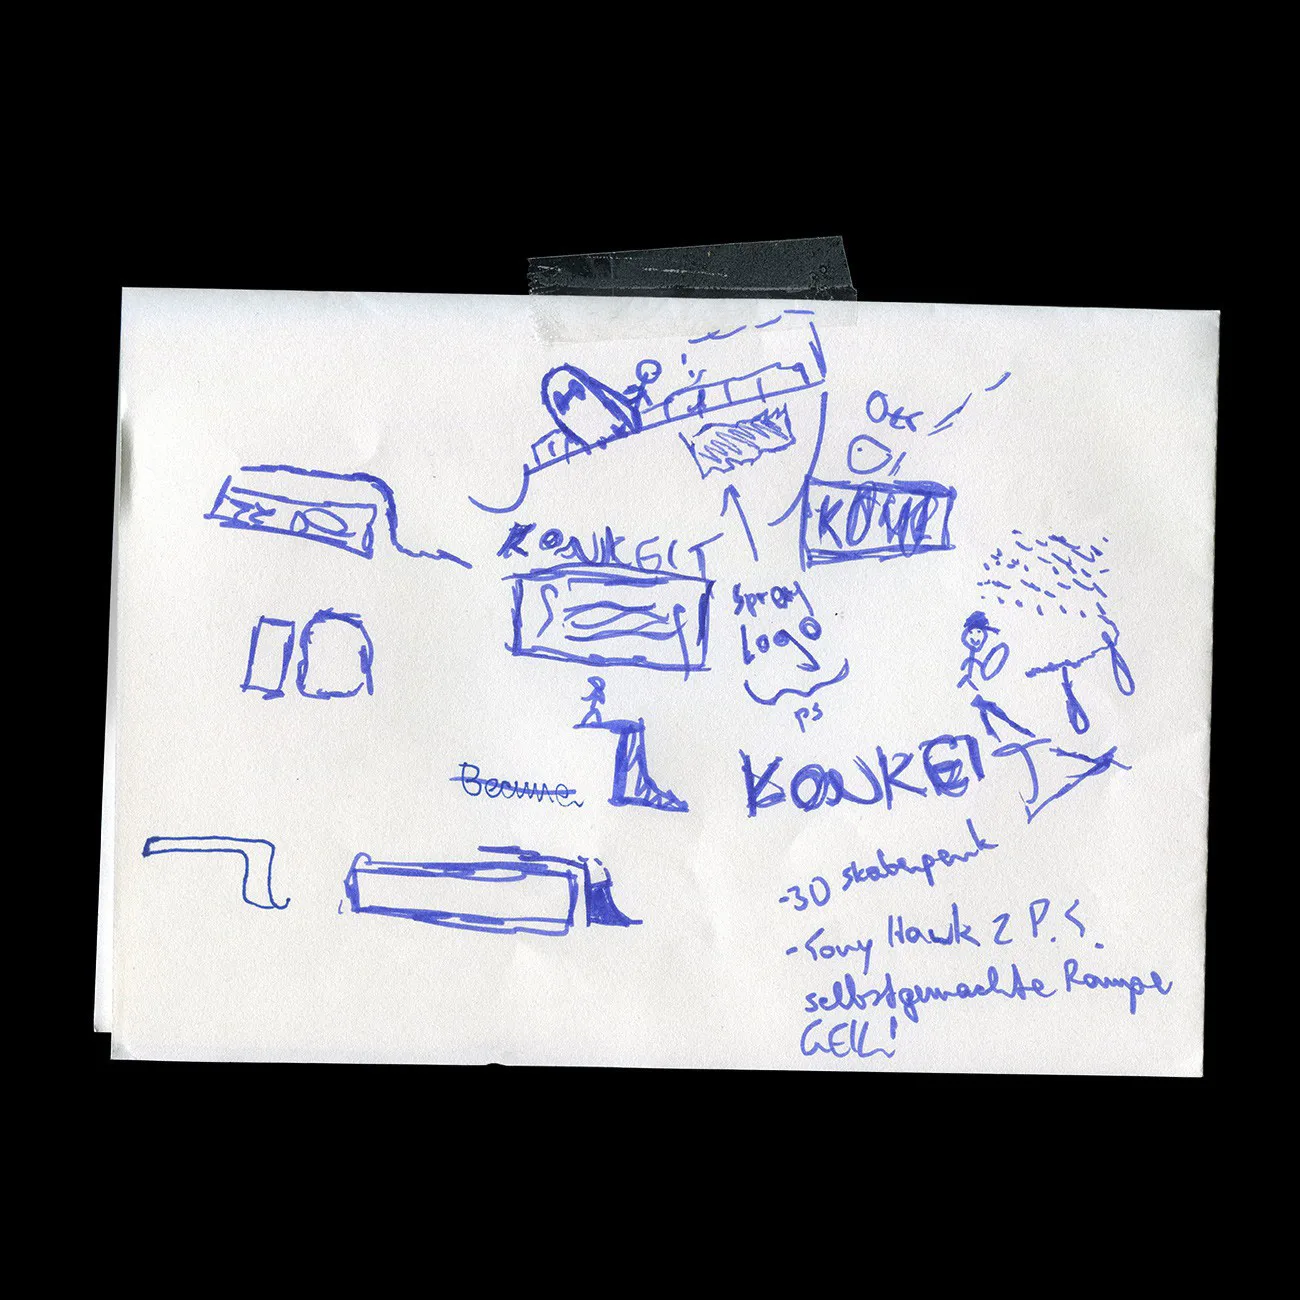 KONKEIT
Spray
Logo
ps
KONKEIT
-3D skaterpark
-Tony Hawk 2 P.S.
selbstgemachte Rampe
GEIL!